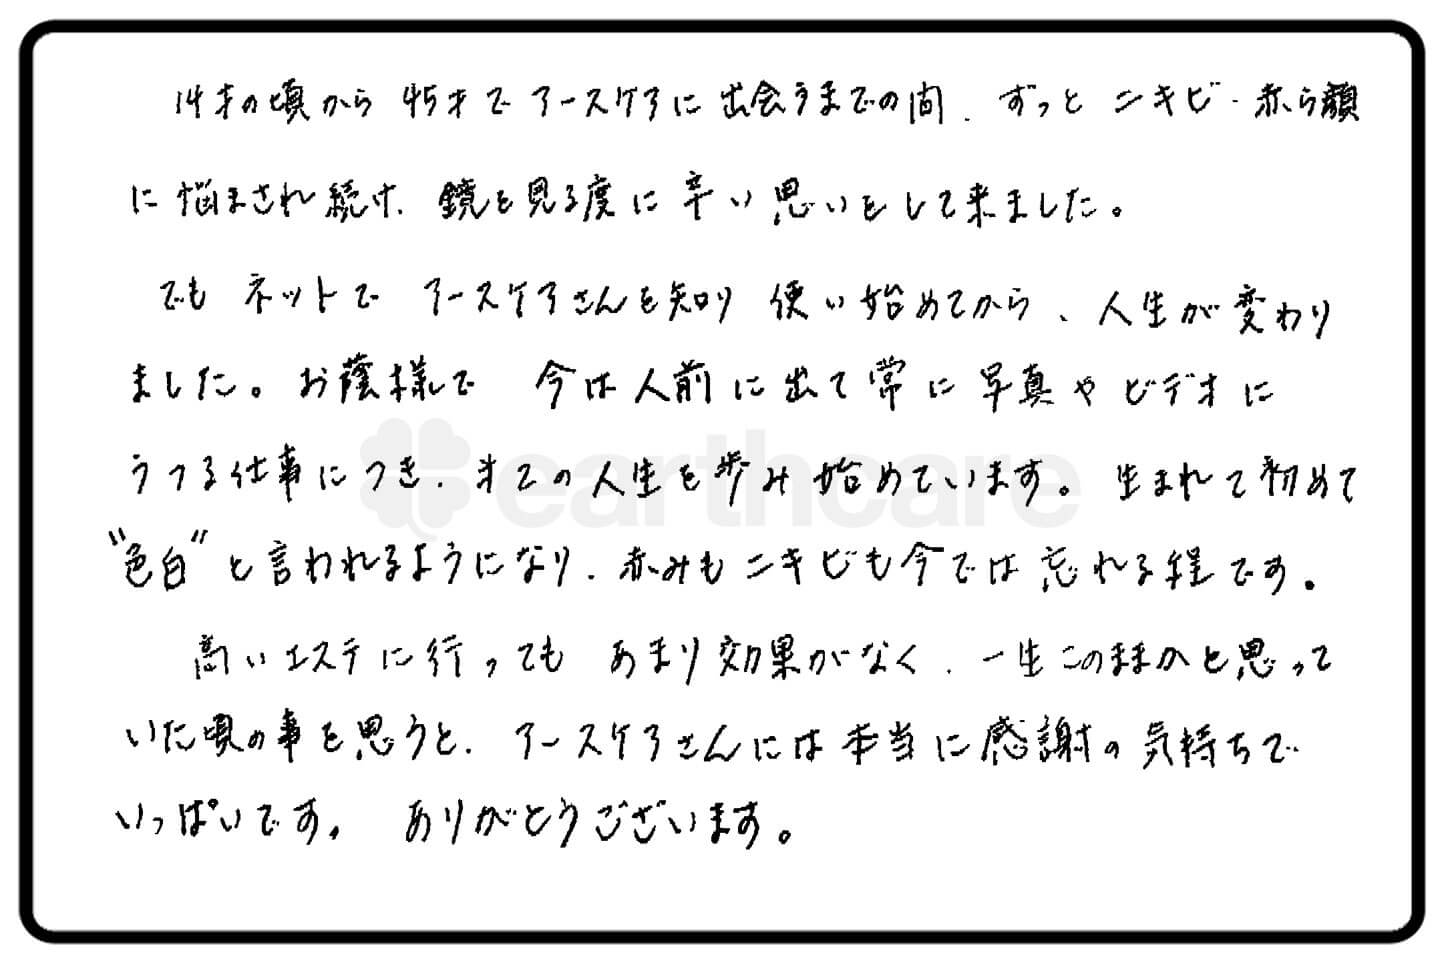 14才の頃から45才でアースケアに出会うまでの間、ずっとニキビ・赤ら顔
に悩まされ続け、鏡を見る度に辛い思いをして来ました。
でもネットでアースケアさんを知り使い始めてから、人生が変わり
ました。お蔭様で 今は人前に出て常に写真やビデオに
うつる仕事につき、才2の人生を歩み始めています。生まれて初めて
"色白"と言われるようになり、赤みもニキビも今では忘れる程です。
高いエステに行っても あまり効果がなく、一生このままかと思って
いた頃の事を思うと、アースケアさんには本当に感謝の気持ちで
いっぱいです。 ありがとうございます。
earthcare